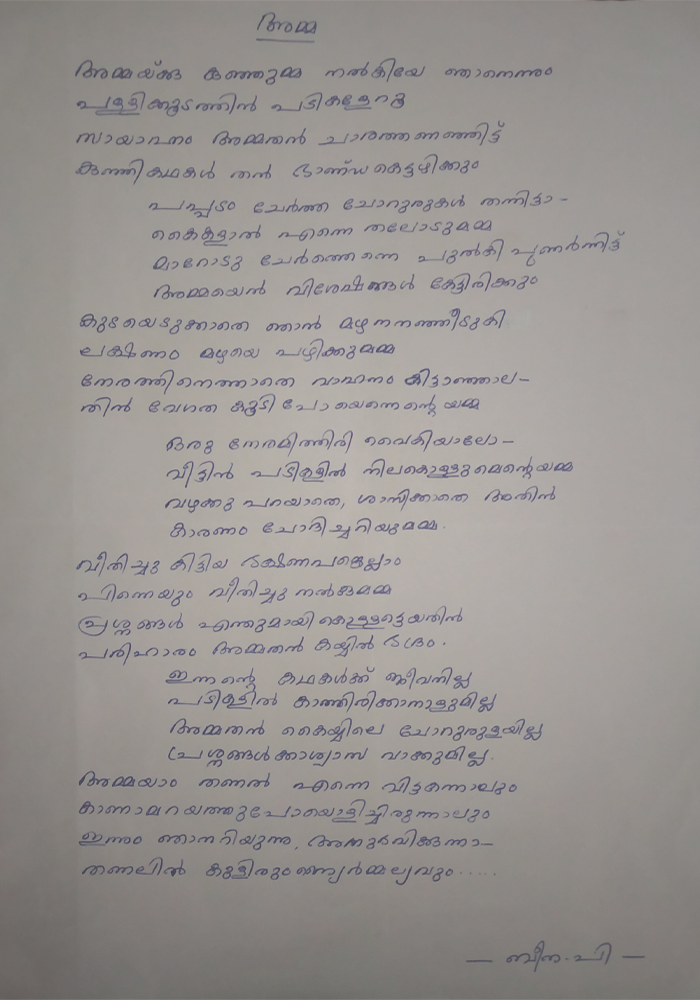 അമ്മ
അമ്മയ്ക്കു കുഞ്ഞുമ്മ നൽകിയേ ഞാനെന്നും
പള്ളിക്കൂടത്തിൻ പടികളേറൂ
സായാഹ്നം അമ്മതൻ ചാരത്തണഞ്ഞിട്ട്
കുഞ്ഞികഥകൾ തൻ ഭാണ്ഡകെട്ടഴിക്കും
പപ്പടം ചേർത്ത ചോറുരുകൾ തന്നിട്ടാ-
കൈകളാൽ എന്നെ തലോടുമമ്മ
മാറോടു ചേർത്തെന്നെ പുൽകി പുണർന്നിട്ട്
അമ്മയെൻ വിശേഷങ്ങൾ കേട്ടിരിക്കും
കുടയെടുക്കാതെ ഞാൻ മഴ നനഞ്ഞീടുകി
ലക്ഷണം മഴയെ പഴിക്കുമമ്മ
നേരത്തിനെത്താതെ വാഹനം കിട്ടാഞ്ഞാല-
തിൻ വേഗത കൂടി പോയെന്നെന്റെയമ്മ
ഒരു നേരമിത്തിരി വൈകിയാലോ-
വീട്ടിൻ പടികളിൽ നിലകൊള്ളുമെന്റെയമ്മ
വഴക്കു പറയാതെ, ശാസിക്കാതെ അതിൻ
കാരണം ചോദിച്ചറിയുമമ്മ.
വീതിച്ചു കിട്ടിയ ഭക്ഷണപങ്കെല്ലാം
പിന്നെയും വീതിച്ചു നൽകുമമ്മ
പ്രശ്നങ്ങൾ എന്തുമായി കൊള്ളട്ടെയതിൻ
പരിഹാരം അമ്മതൻ കയ്യിൽ ഭദ്രം.
ഇന്നെന്റെ കഥകൾക്ക് ജീവനില്ല
പടികളിൽ കാത്തിരിക്കാനാളുമില്ല
അമ്മതൻ കൈയ്യിലെ ചോറുരുളയില്ല
പ്രശ്നങ്ങൾക്കാശ്വാസ വാക്കുമില്ല.
അമ്മയാം തണൽ എന്നെ വിട്ടകന്നാലും
കാണാമറയത്തുപോയൊളിച്ചിരുന്നാലും
ഇന്നും ഞാനറിയുന്നു, അനുഭവിക്കുന്നാ-
തണലിൻ കുളിരും നൈർമ്മല്യവും.....
— ബീന.പി —